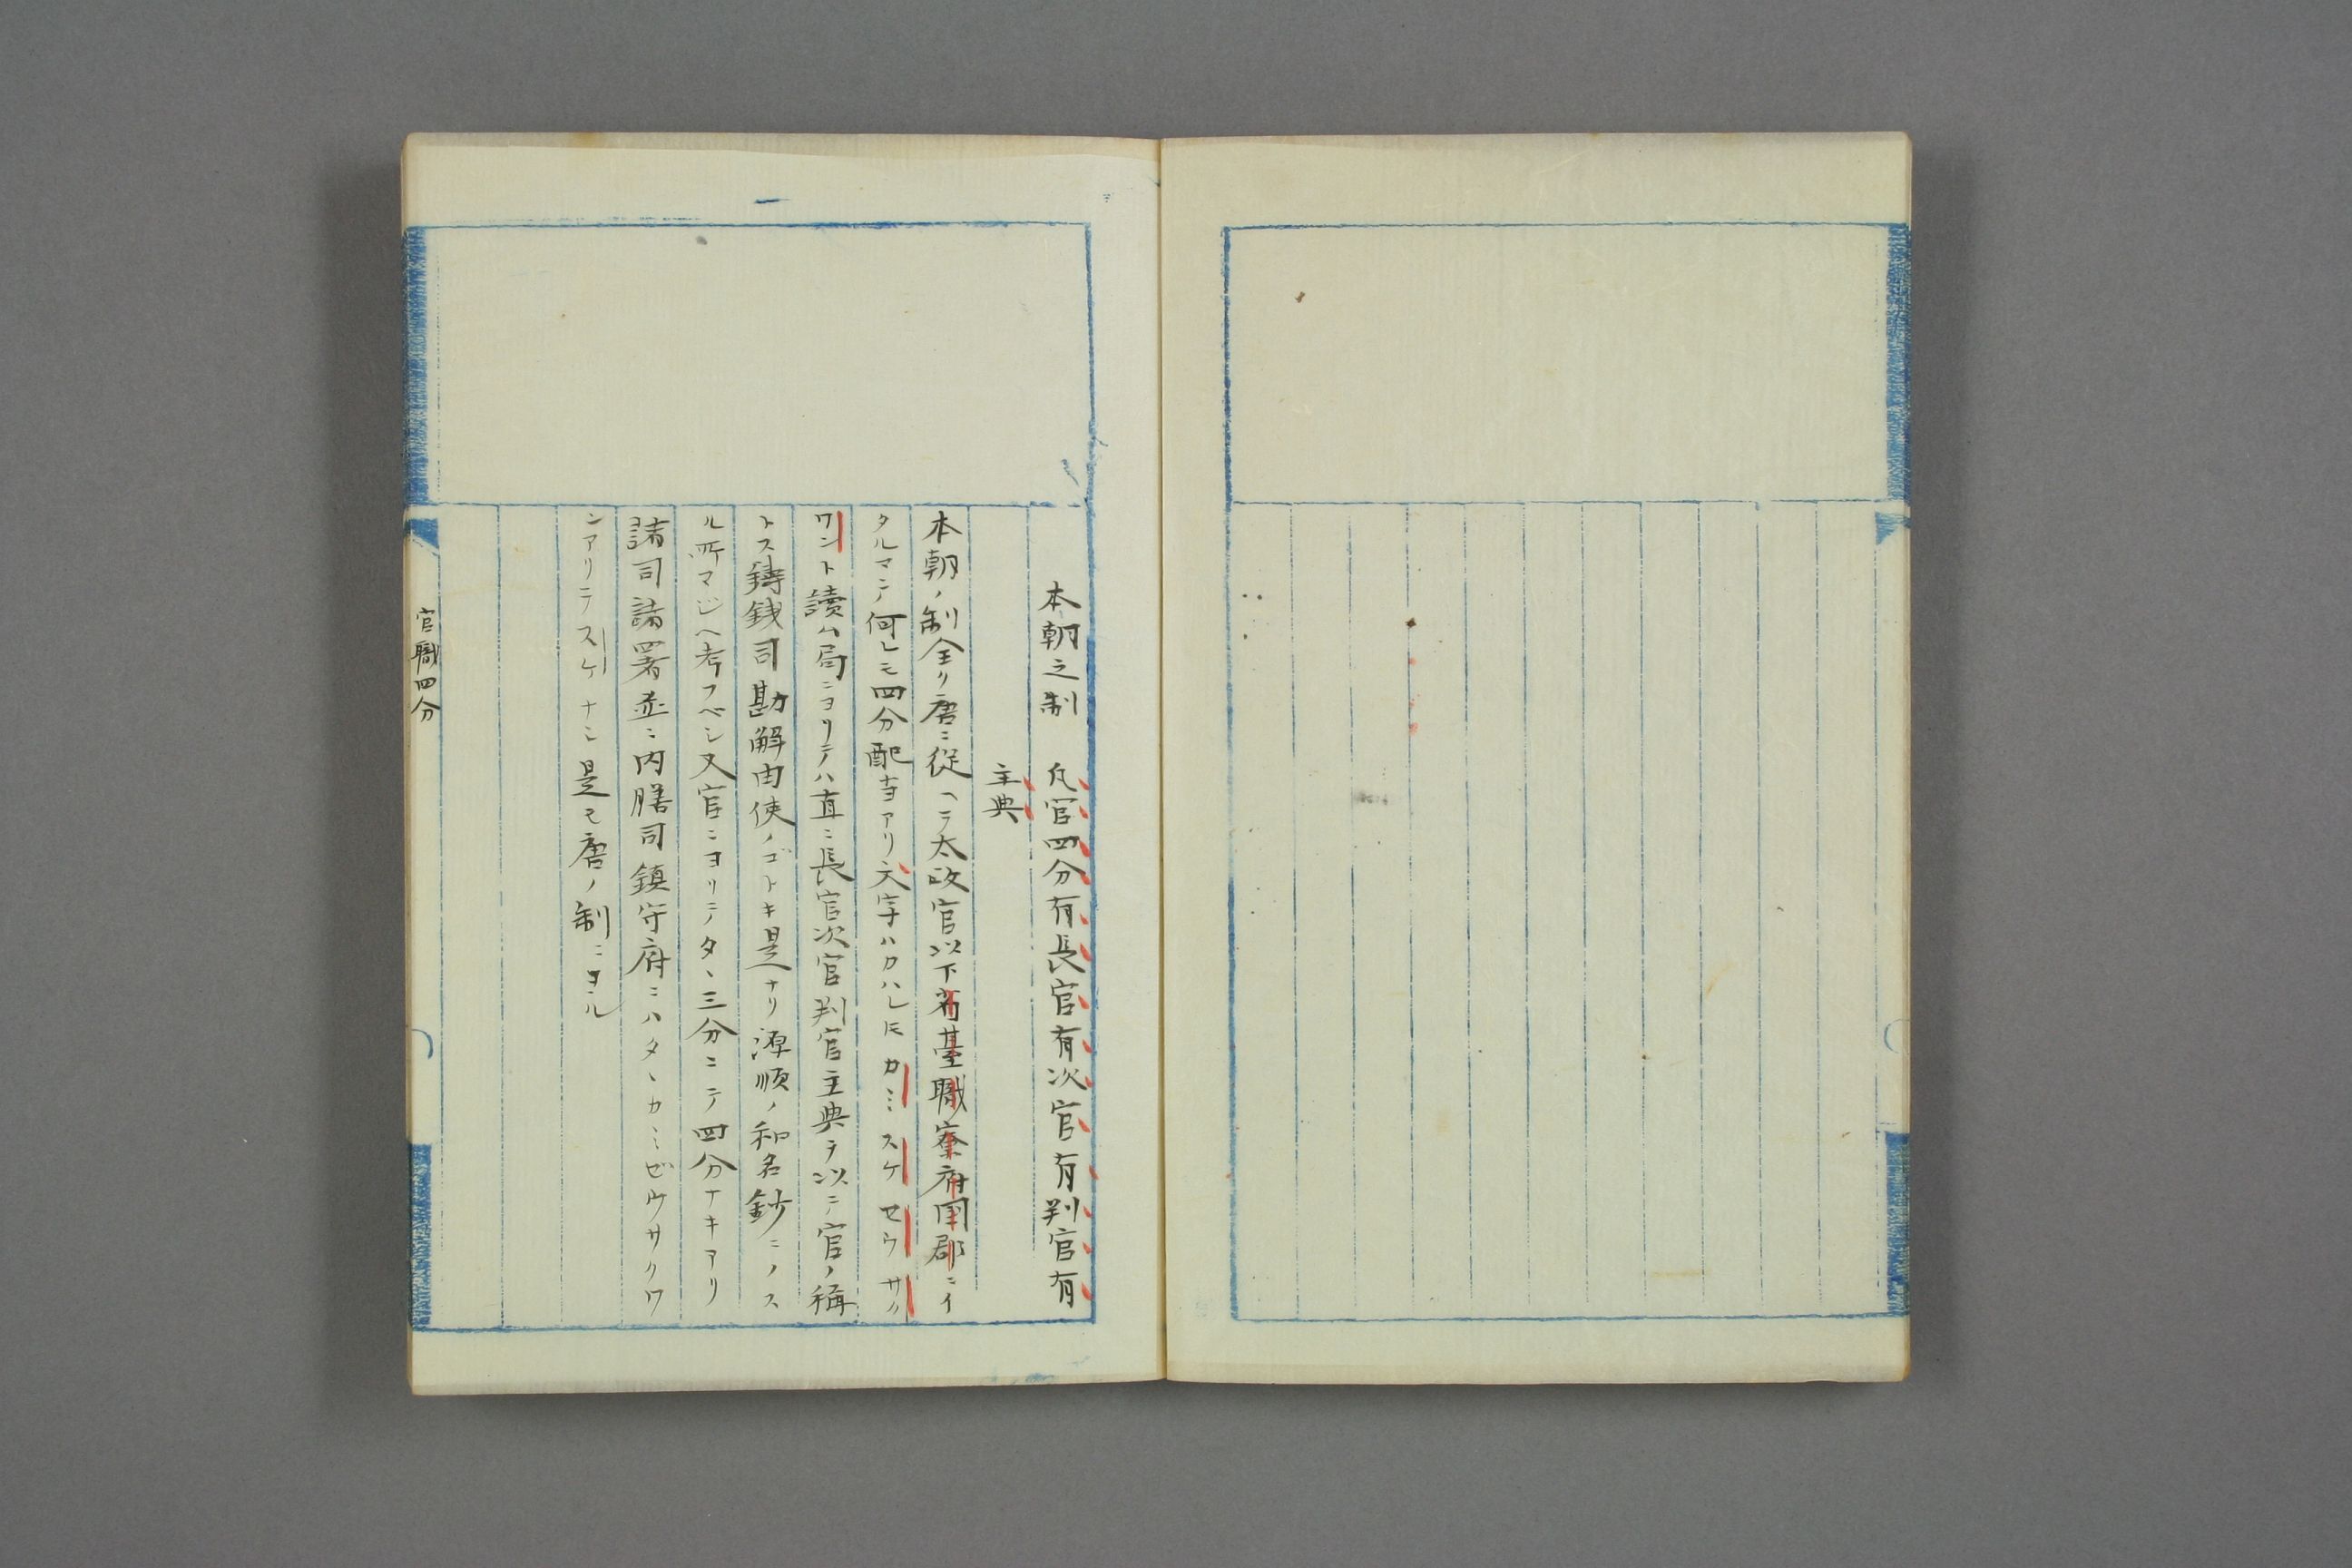 本朝之制　凡官四分有長官有次官有判官有
主典
本朝ノ制全ク唐ニ從ヘテ太政官以下省臺職寮府国郡ニイ
タルマテ何レモ四分配當アリ文字ハカハレ𪜈カミスケセウサク
ワント讀ハ局ニヨリテハ直ニ長官次官判官主典ヲ以テ官ノ稱
トス鋳銭司勘解由使ノゴトキ是ナリ源順ノ和名鈔ニノス
ル所マジヘ考フベシ又官ニヨリテタヽ三分ニテ四分ナキアリ
諸司諸署並ニ内膳司鎮守府ニハタヽカミゼウサクワ
ンアリテスケナシ是モ唐ノ制ニヨル
官職四分